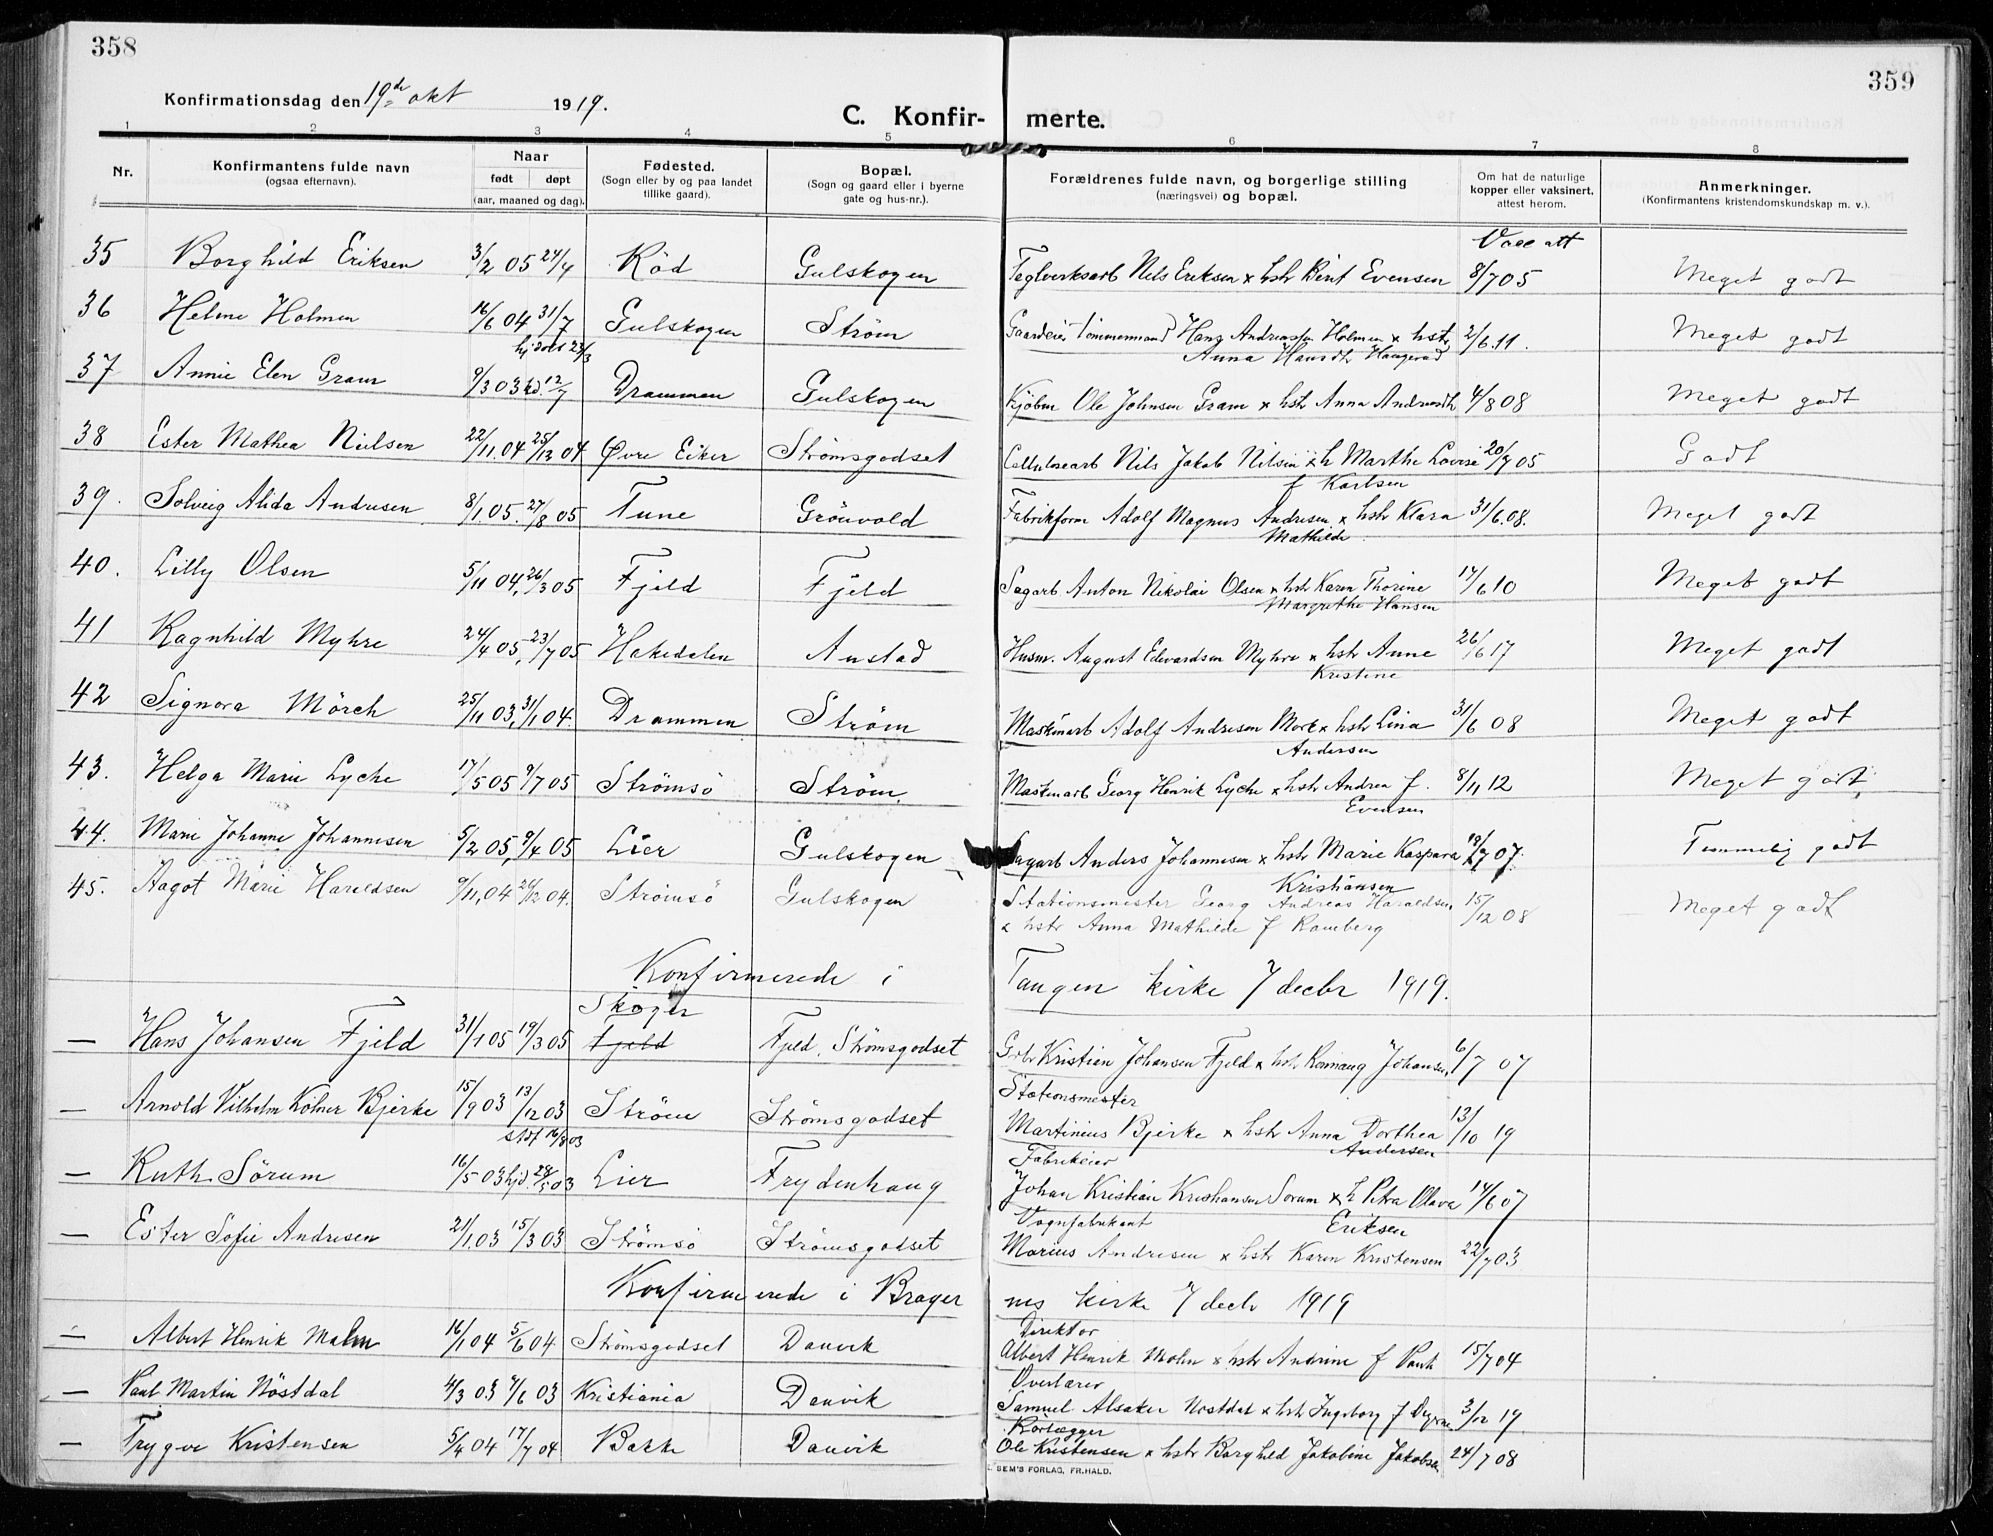 358
359
Konfirmationsdag den 19de okt 1919.
C. Konfir- merte.
1 2 3 4 5 6 7 8
Nr.
Konfirmantens fulde navn
(ogsaa efternavn).
Naar
født døpt
(aar, maaned og dag).
Fødested.
(Sogn eller by og paa landet
tillike gaard).
Bopæl.
(Sogn og gaard eller i byerne
gate og hus-nr.).
Forældrenes fulde navn, og borgerlige stilling
(næringsvei) og bopæl.
Om hat de naturlige
kopper eller vaksinert,
attest herom.
Anmerkninger.
(Konfirmantens kristendomskundskap m. v.).
Vacc att
35 Borghild Eriksen 3/2 05 24/4 Röd Gulskogen Teglverksarb Nils Eriksen x hstr Berit Evensen 8/7 05 Meget godt
36 Helene Holmen 16/6 04 31/7 Gulskogen Strøm Gaardeier Tømmermand Hans Andreassen Holmen x hstr 2/6.11. Meget godt
hjdøbt 23/3 Anna Hansdtr Haugerud
37 Annie Elen Gram 9/3 03 kd. 12/7 Drammen Gulskogen Kjøbm Ole Johnsen Gram x hstr Anna Andreasdtr 4/8 08 Meget godt
38 Ester Mathea Nielsen 22/11.04 25/12 04 Øvre Eiker Strømsgodset Cellulosearb Nils Jakob Nilsen x h Marthe Lovise 20/7 05 Godt
f Karlsen
39. Solveig Alida Andresen 8/1.05. 27/8 05 Tune Grönvold Fabrikform Adolf Magnus Andresen x hstr Klara 31/6.08. Meget godt
Mathilde
40. Lilly Olsen 5/11 04, 26/3 05 Fjeld Fjeld Sagarb. Anton Nikolai Olsen x hstr Karen Thorine 17/6 10 Meget godt
Margrethe Hansen
41 Ragnhild Myhre 24/4 05, 23/7 05 Hakedalen Austad Husm. August Edvardsen Myhre x hstr Anne 26/6 17 Meget godt
Kristine
42 Signora Mörch 25/11 03, 31/1 04. Drammen Strøm Maskinarb Adolf Andresen Mork x hstr Lina 31/6 08 Meget godt
Andersen
43. Helga Marie Lyche 17/5 05 9/7 05 Strømsö Strøm Maskinarb Georg Henrik Lyche x hstr Andrea f. 8/11 12 Meget godt
Evensen
44. Marie Johanne Johannesen 5/2 05, 9/4 05 Lier Gulskogen Sagarb Anders Johannesen x hstr Marie Kaspara 19/7 07. Temmelig godt
Kristiansen
45. Aagot Marie Haraldsen 9/11,04 26/12 04. Strømsö Gulskogen Stationsmester Georg Andreas Haraldsen 15/12 08 Meget godt
x hstr Anna Mathilde f Ramberg
Konfirmerede i Tangen kirke 7 decbr 1919.
Skoger
— Hans Johansen Fjeld 31/1 05 19/3 05 Fjeld Fjeld, Strømsgodset Grbr Kristian Johansen Fjeld x hstr Rennaug Johansen 6/7 07
Stationsmester
— Arnold Vilhelm Kölner Bjerke 15/9 03 13/12 03 Strøm Strømsgodset Martinius Bjerke x hstr Anna Dorthea 13/10 19
stdf 16/8 03 Andersen
Fabrikeier
— Ruth Sörum 16/5 03 hjd. 28/5 03 Lier Frydenhaug Johan Kristian Kristiansen Sorum x h Petra Olava 14/6 07
Vognfabrikant Eriksen
— Ester Sofie Andresen 21/1.03 15/3 03 Strømsö Strømsgodset Marius Andresen x hstr Karen Kristensen 22/7 03
Konfirmerede i Brager nes kirke 7 decbr 1919
Direktør
— Albert Henrik Mohn 16/1 04 5/6 04 Strømsgodset Danvik Albert Henrik Mohn x hstr Andrine f 15/7 04
Overlærer
— Paul Martin Nöstdal 4/3 03 7/6 03 Kristiania Danvik Samuel Alsaker Nöstdal x hstr Ingeborg f 3/12 19.
Rörlægger
— Trygve Kristensen 5/4 04 17/7 04 Bakke Danvik Ole Kristensen x hstr Borghild Jakobine Jakobsen 24/7 08
SEM'S FORLAG, FR.HALD.